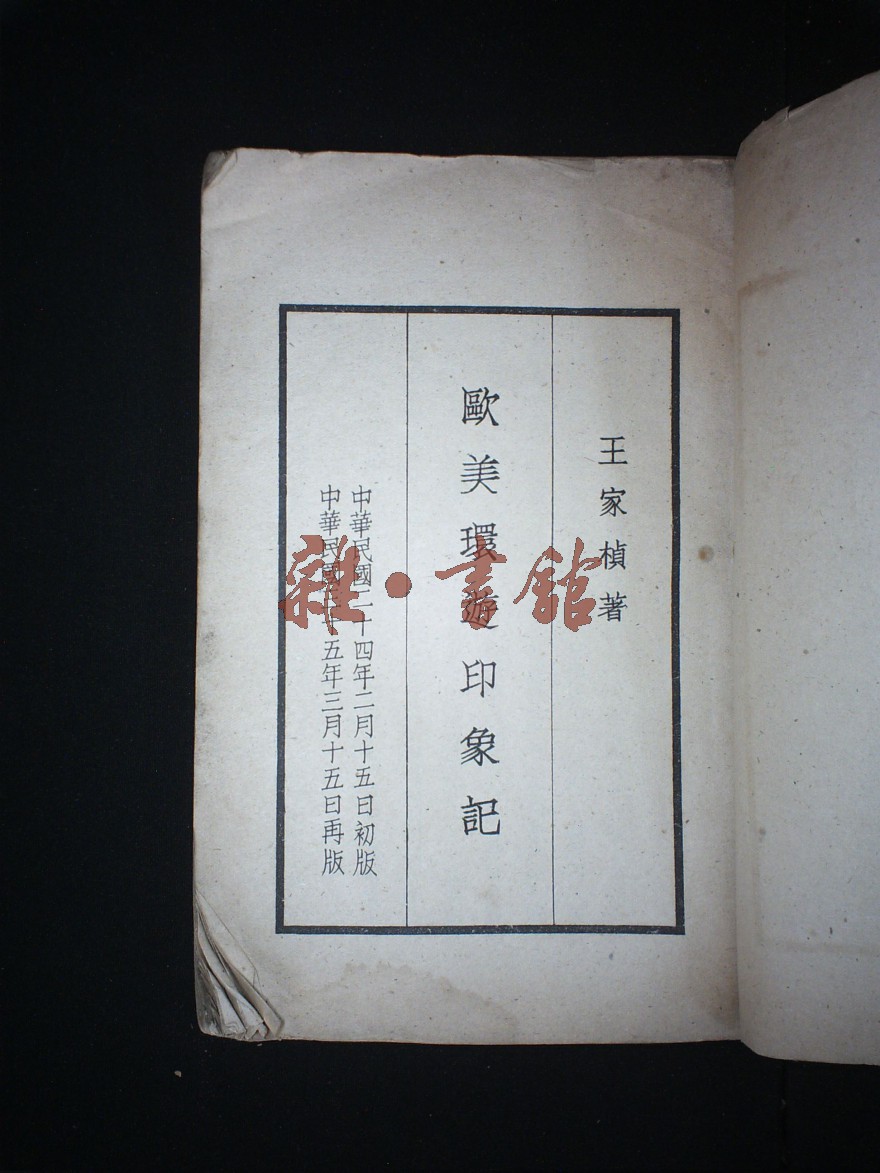 王家楨著
歐美環遊印象記
中華民國二十四年二月十五日初版
中華民國二十五年三月十五日再版
雜·書館